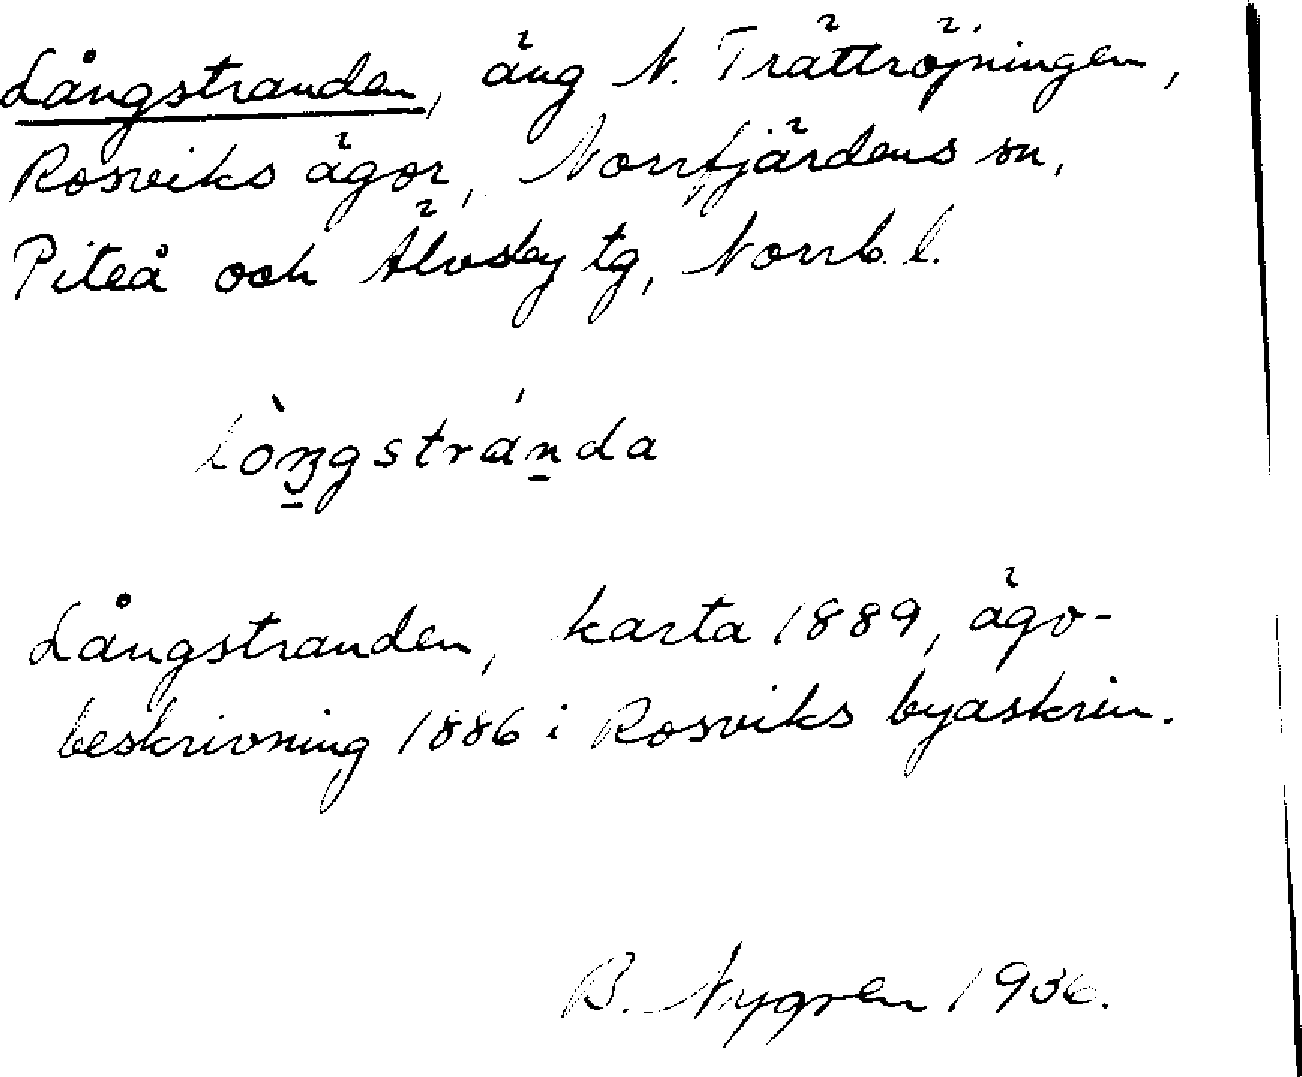 Långstranden, äng N. Trättröjningen,
Rosviks ägor, Norrfjärdens sn,
Piteå och Älvsby tg, Norrb. l.
lòŋ̱gstrán̠da
Långstranden, karta 1889, ägo-
beskrivning 1886 i Rosviks byaskrin.
B. Nygren 1936.